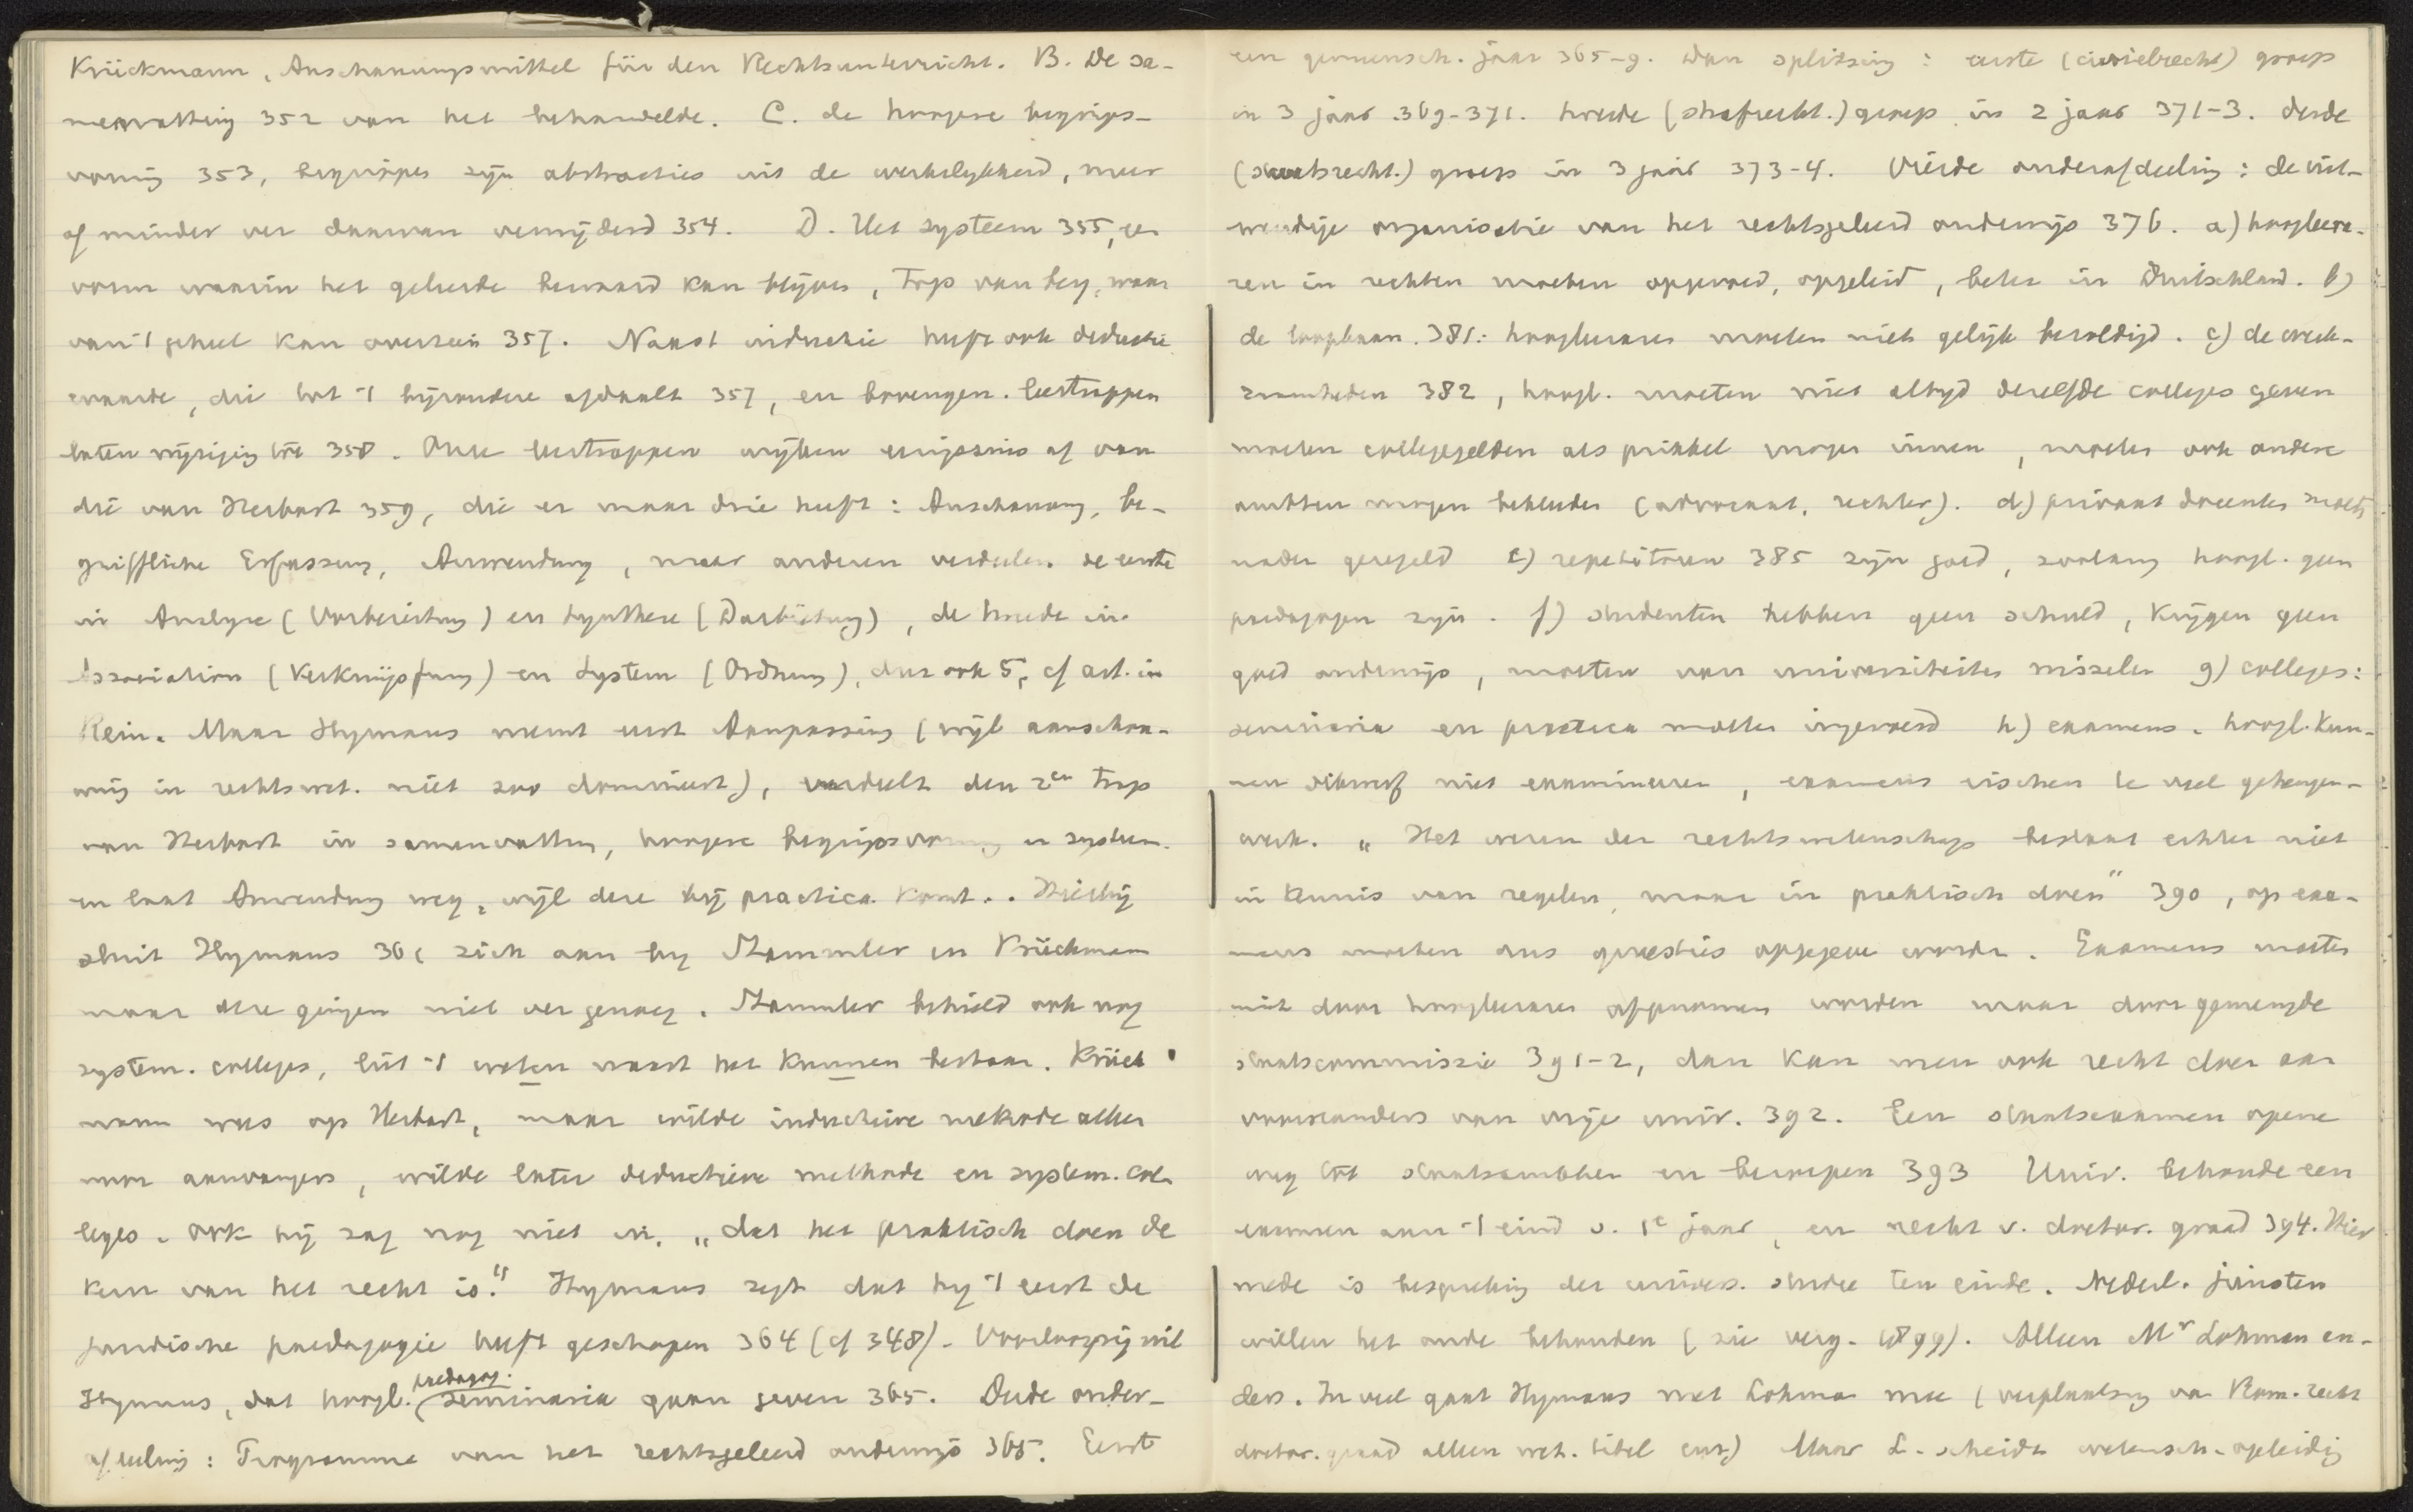 Krückmann, Anschauungsmittel für den Rechtsunterricht. B. De sa-
menvatting 352 van het behandelde. C. de hoogere begrips-
vorming 353, begrippen zijn abstracties uit de werkelijkheid, meer
of minder ver daarvan verwijderd 354. D. Het systeem 355, een
vorm waarin het geleerde bewaard kan blijven, Trap van beg. waar
van 't geheel kan overzien 357. Naast inductie heeft ook deductie
waarde, die tot 't bijzondere afdaalt 357, en bovengen. leertrappen
laten wijziging toe 358. Onze leertrappen wijken eenigszins af van
die van Herbart 359, die er maar drie heeft: Anschauung, be-
griffliche Erfassung, Anwendung, maar anderen verdeelen de eerste
in Analyse (Vorbereitung) en Synthese (Darbietung), de tweede in
Association (Verknüpfung) en System (Ordnung), dus ook 5, cf art. in
Rein. Maar Hymans neemt eerst Aanpassing (wijl aanschou-
wing in rechtswet. niet zoo domineert), verdeelt den 2en trap
van Herbart in samenvatting, hoogere begripsvorming en systeem.
en laat Anwendung weg, wijl deze bij practica komt. Hierbij
sluit Hymans 361 zich aan bij Stammler en Krückmann
maar deze gingen niet ver genoeg. Stammler behield ook nog
system. colleges, liet 't weten naast het kunnen bestaan. Krück
mann was op Herbart, maar wilde inductieve methode alleen
voor aanvangers, wilde later deductieve methode en system. col-
leges. Ook hij zag nog niet in, „dat het praktisch doen de
kern van het recht is." Hymans zegt dat hij 't eerst de
juridische paedagogie heeft geschapen 364 (cf 348). Voorloopig wil
Hymans, dat hoogl. paedagog. seminaria gaan geven 365. Derde onder-
afdeeling: Programma van het rechtsgeleerd onderwijs 365. Eerst
een gemeensch. jaar 365-9. Dan splitsing: eerste (civielrecht) groep
in 3 jaar 369-371. tweede (strafrecht.) groep in 2 jaar 371-3. derde
(staatsrecht.) groep in 3 jaar 373-4. Vierde onderafdeeling: de uit-
wendige organisatie van het rechtsgeleerd onderwijs 376. a) hoogleera-
ren in rechten moeten opgevoed, opgeleid, beter in Duitschland. b)
de loopbaan 381: hoogleeraren moeten niet gelijk bezoldigd. c) de werk-
zaamheden 382, hoogl. moeten niet altijd dezelfde colleges geven
moeten collegegelden als prikkel mogen innen, moeten ook andere
ambten mogen bekleeden (advocaat, rechter). d) privaat docenten moet
nader geregeld e) repetitoren 385 zijn goed, zoolang hoogl. geen
paedagogen zijn. f) studenten hebben geen schuld, krijgen geen
goed onderwijs, moeten van universiteiten wisselen g) colleges:
seminaria en practica moeten ingevoerd h) examens. hoogl. kun-
nen dikwijls niet examineeren, examens eischen te veel geheugen-
werk. „Het wezen der rechtswetenschap bestaat echter niet
in kennis van regelen, maar in praktisch doen" 390, op exa-
mens moeten dus quaesties opgegeven worden. Examens moeten
niet door hoogleeraren afgenomen worden maar door gemengde
staatscommissie 391-2, dan kan men ook recht doen aan
voorstanders van vrije univ. 392. Een staatsexamen opene
weg tot staatsambten en beroepen 393 Univ. behoude een
examen aan 't eind v. 1e jaar, en recht v. doctor. graad 394. Hier
mede is bespreking der univers. studie ten einde. Nederl. juristen
willen het oude behouden (zie verg. 1899). Alleen Mr Lohman an-
ders. In veel gaat Hymans met Lohman mee (verplaatsing van Rom. recht
doctor. graad alleen wet. titel enz) Maar L. scheidt wetensch. opleiding